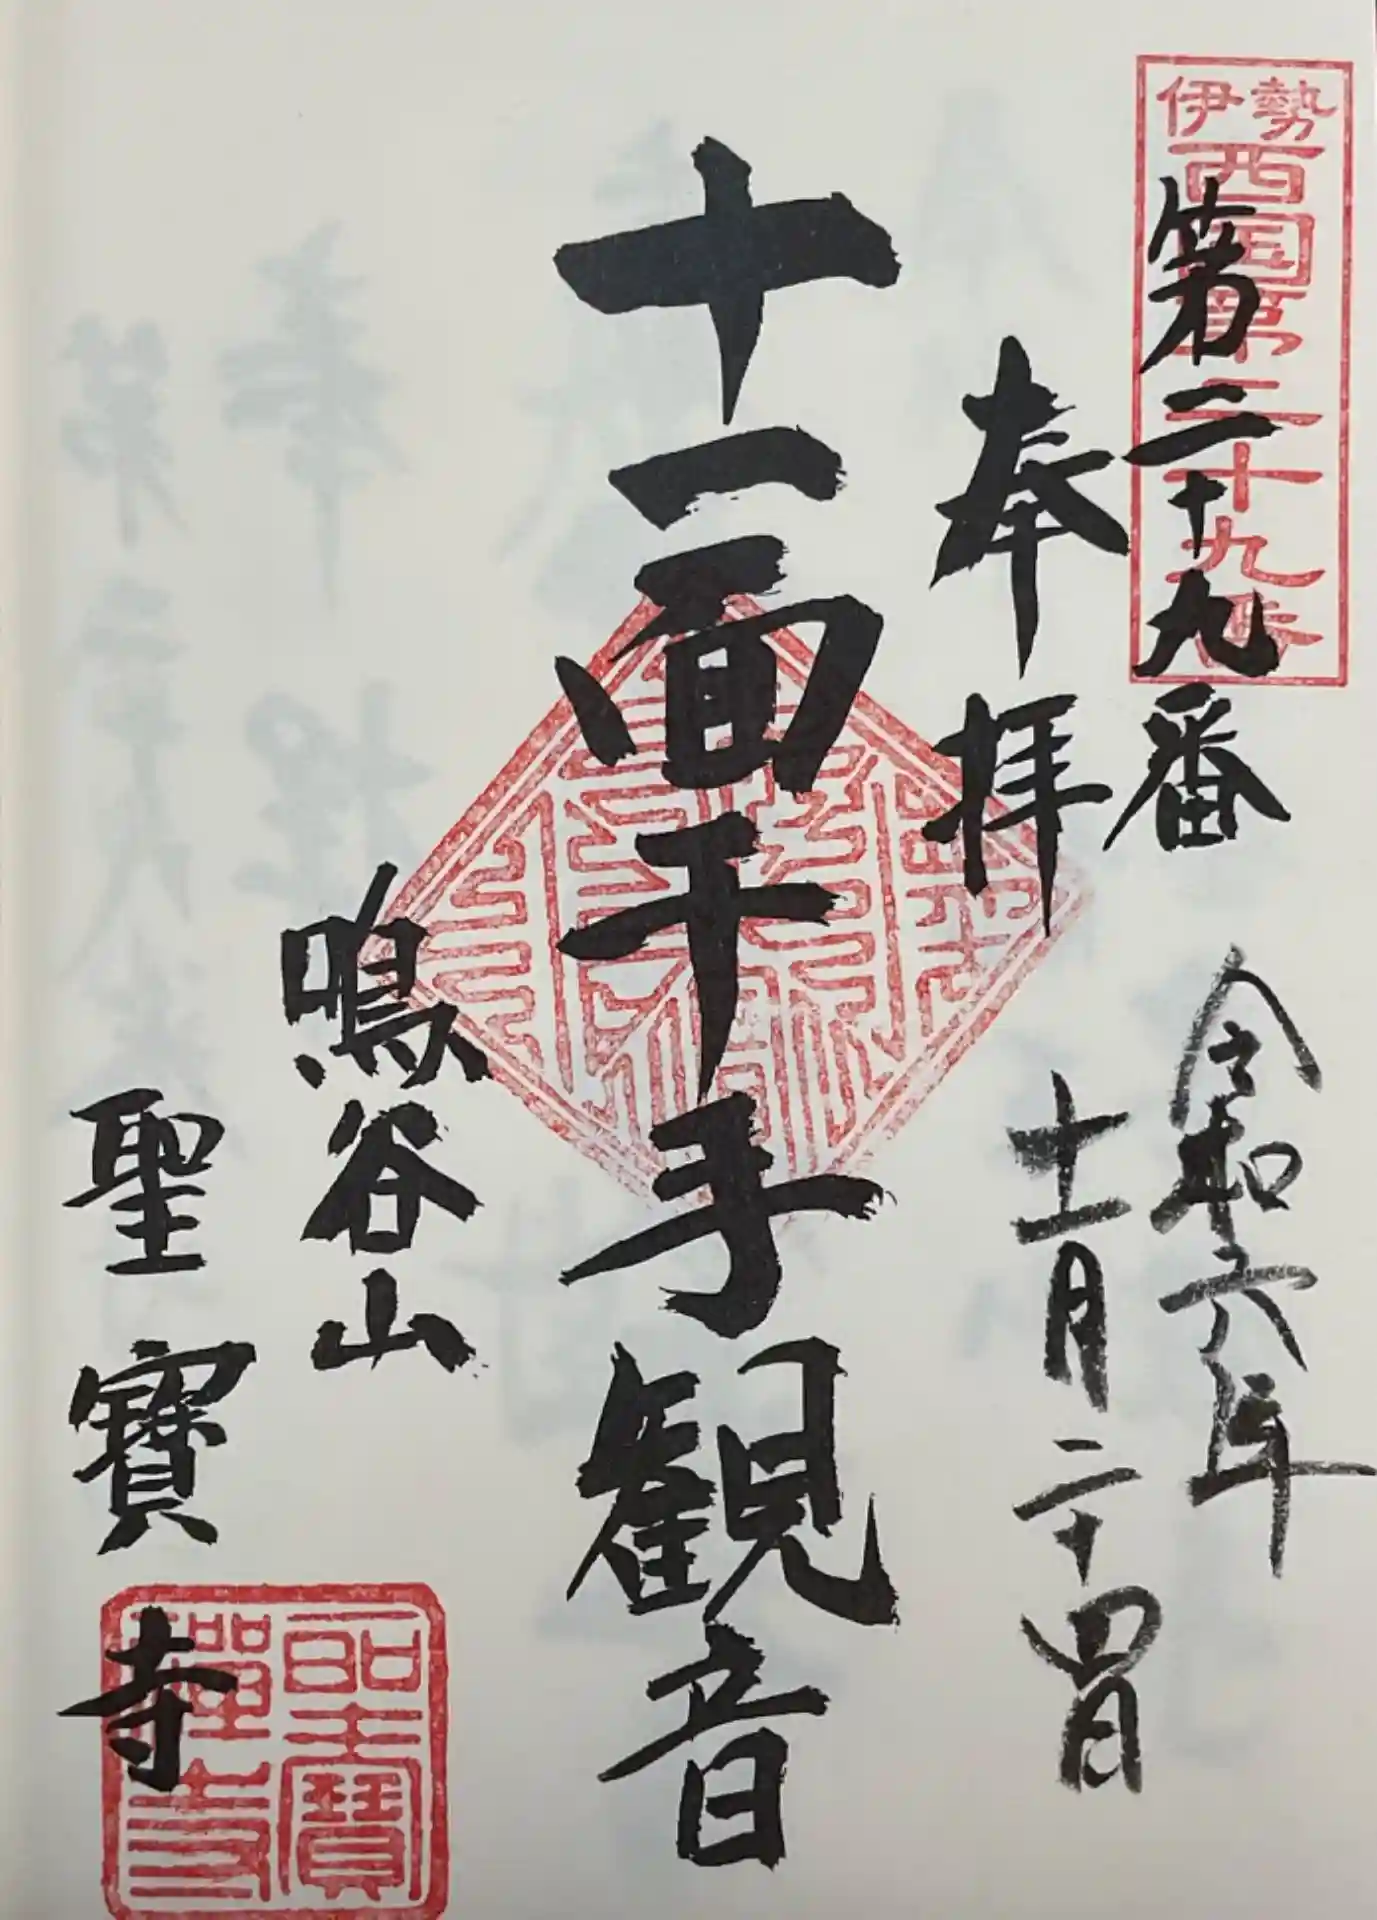 伊勢
西国第二十九番
第二十九番
奉拝
令和六年
十一月二十四日
十一面千手観音
鳴谷山
聖寶寺
聖寶
禪寺